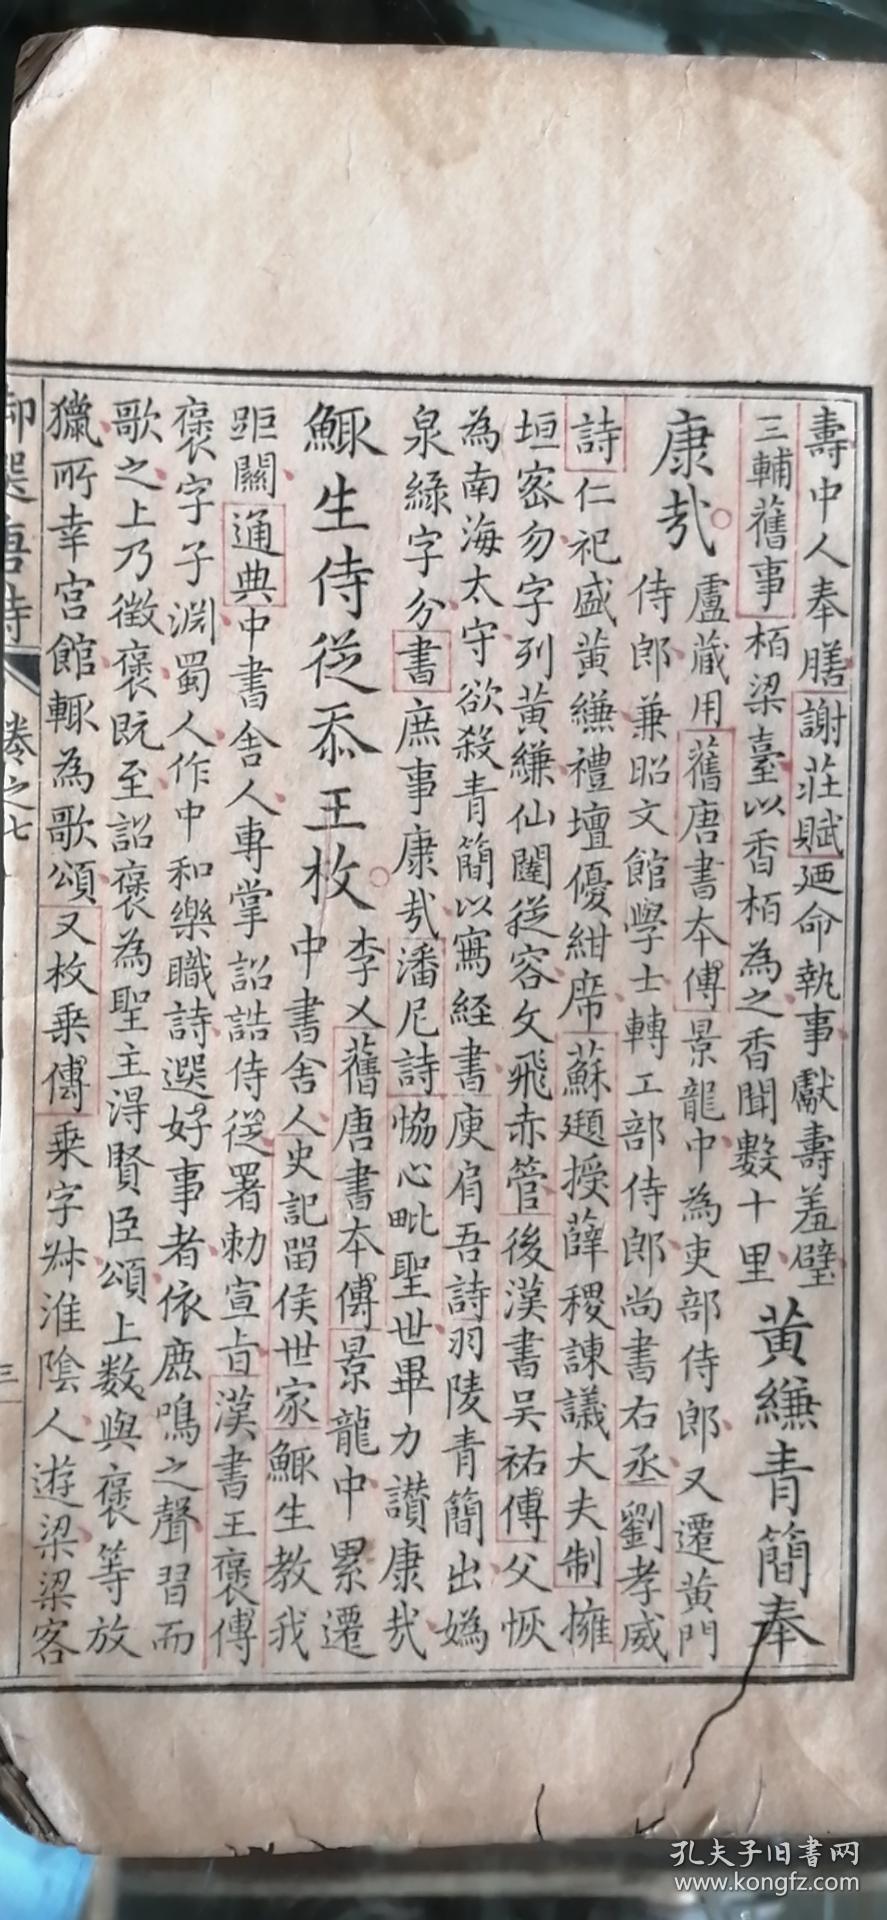 壽中人奉膳謝莊賦廼命執事獻壽羞璧
三輔舊事栢梁臺以香栢為之香聞數十里黃縑青簡奉
康哉盧藏用舊唐書本傳景龍中為吏部侍郎又遷黃門
侍郎兼昭文館學士轉工部侍郎尚書右丞劉孝威
詩仁祀盛黃縑禮壇優紺席蘇頲授薛稷諫議大夫制擁
垣密勿字列黃縑仙闈從容文飛赤管後漢書吳祐傳父恢
為南海太守欲殺青簡以寫經書庾肩吾詩羽陵青簡出媯
泉綠字分書庶事康哉潘尼詩恊心毗聖世畢力讃康哉
鯫生侍從忝王枚李乂舊唐書本傳景龍中累遷
中書舍人史記留侯世家鯫生教我
距關通典中書舍人專掌詔誥侍從署勅宣旨漢書王褒傳
褒字子淵蜀人作中和樂職詩選好事者依鹿鳴之聲習而
歌之上乃徵褒既至詔褒為聖主得賢臣頌上數與褒等放
獵所幸宮館輒為歌頌又枚乗傳乗字叔淮陰人遊梁梁客
御選唐詩 卷之七 三
孔夫子旧书网
www.kongfz.com